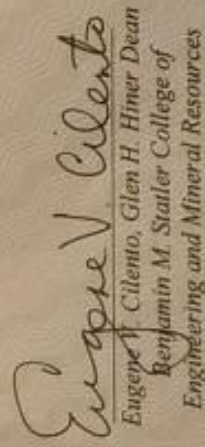 Eugene V. Cilento
Eugene V. Cilento, Glen H. Hiner Dean
Benjamin M. Statler College of
Engineering and Mineral Resources